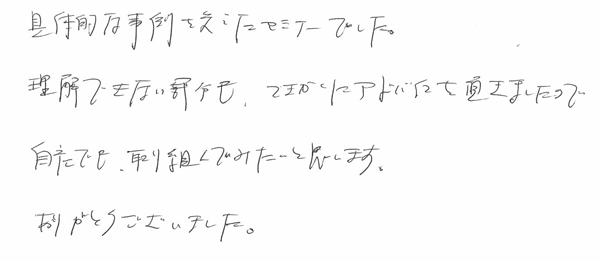 具体的な事例を交えたセミナーでした。
理解できない部分も、アドバイスを頂きましたので
自社でも、取り組んでみたいと思います。
ありがとうございました。